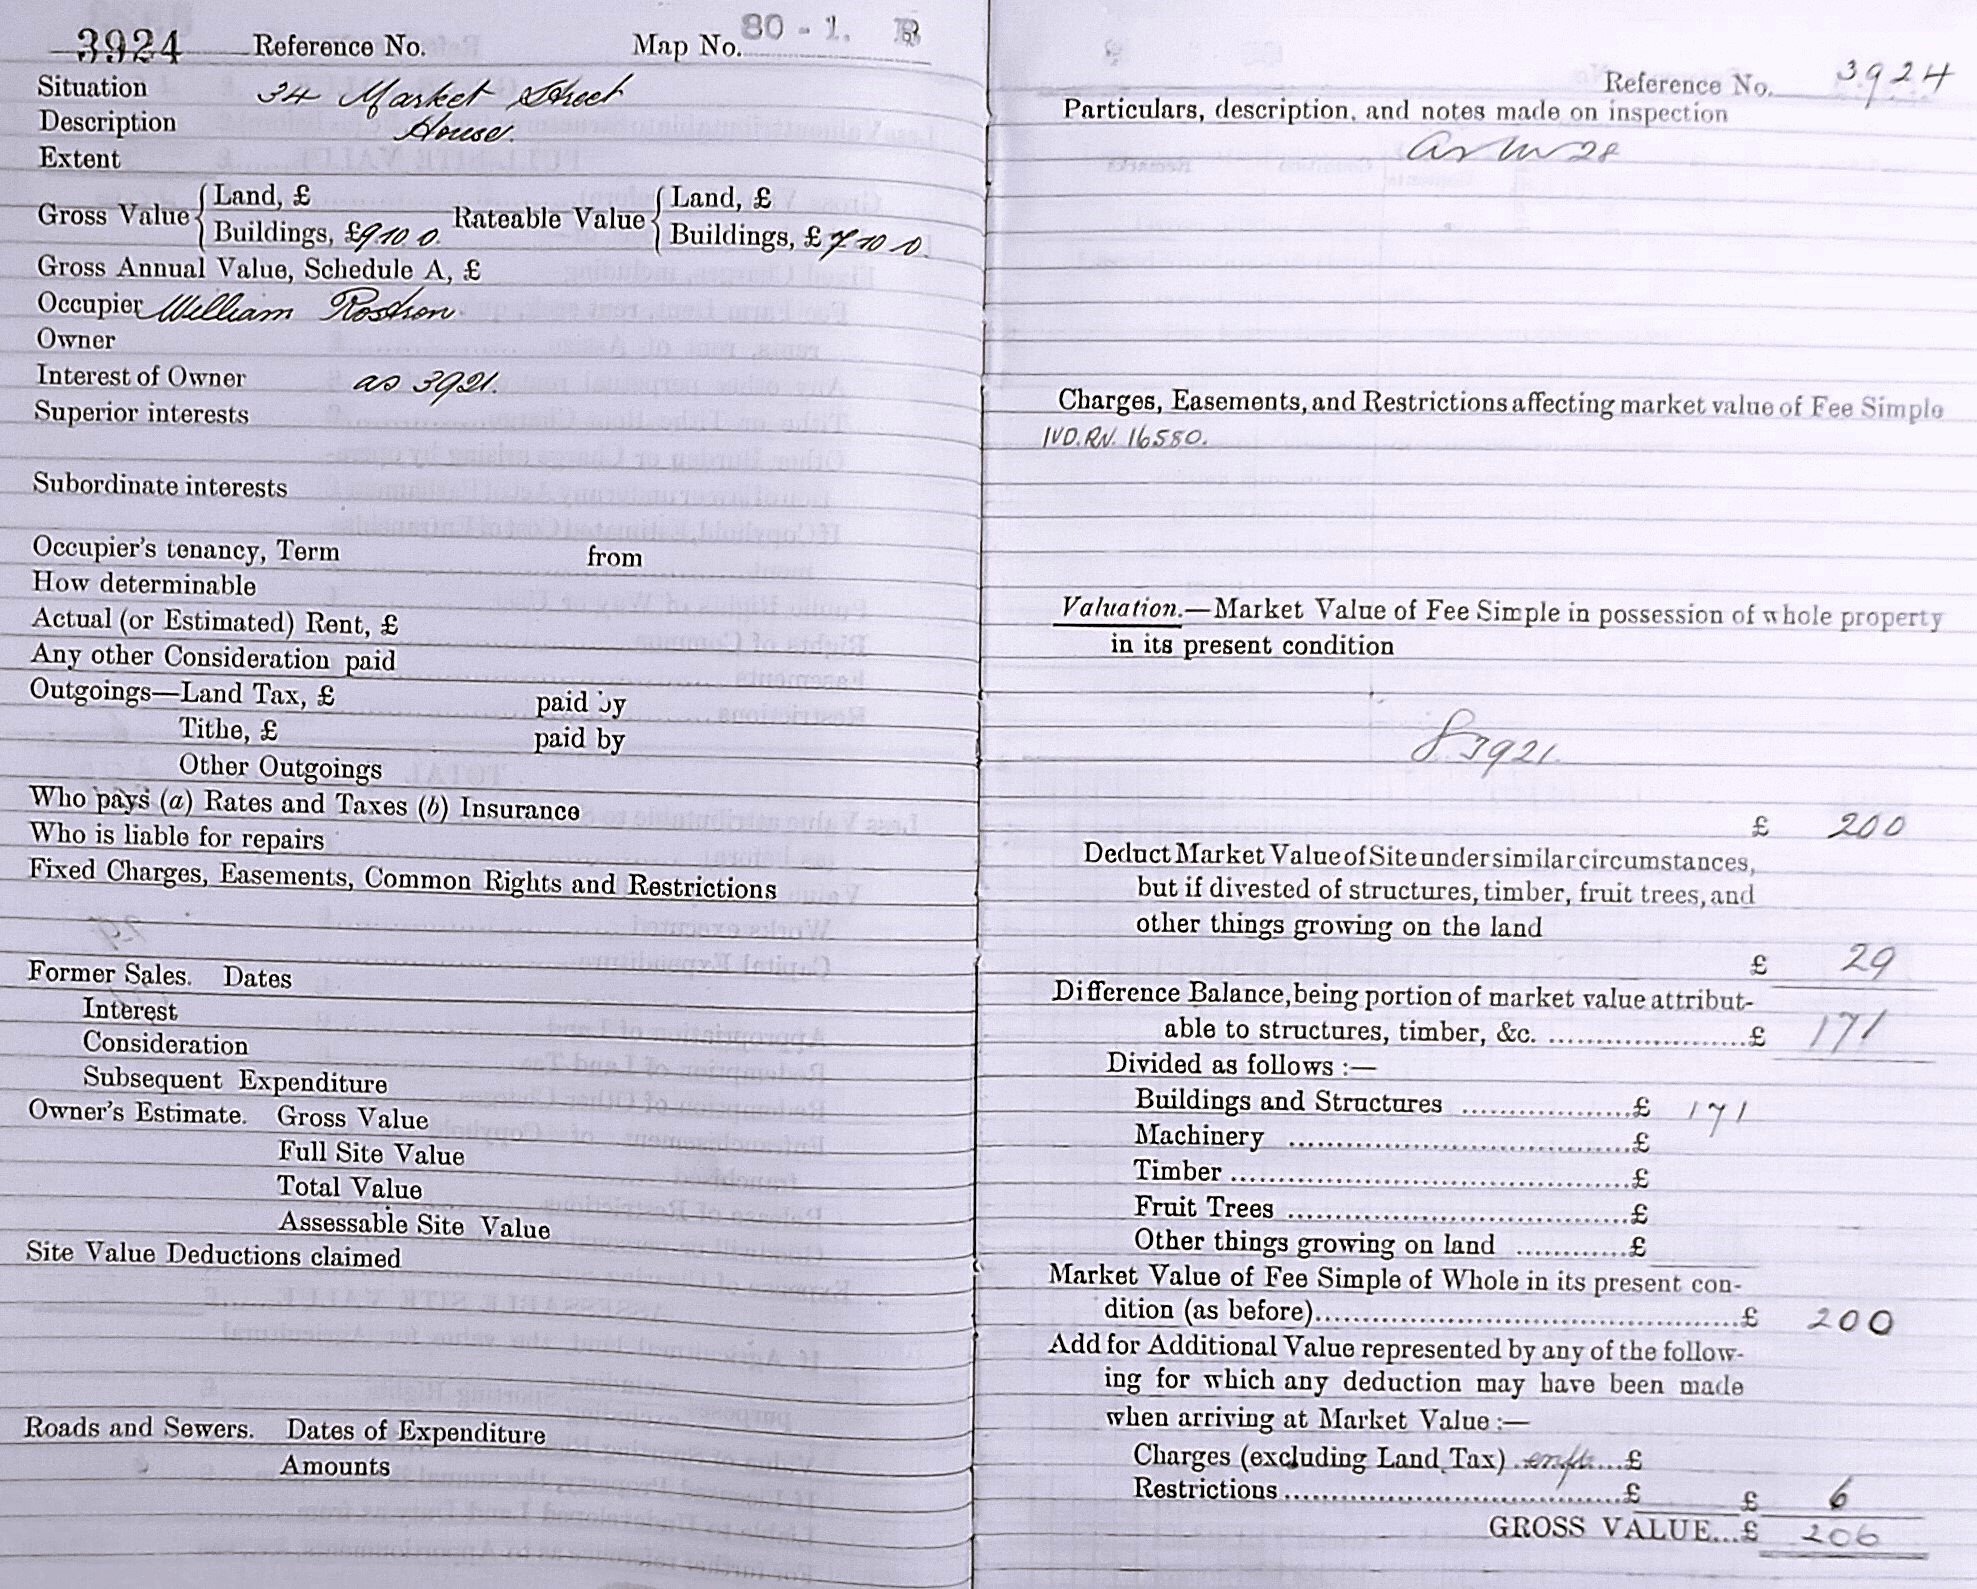 3924 Reference No. Map No. 80 - 1. B
Situation 34 Market Street
Description House.
Extent
Gross Value { Land, £ Rateable Value { Land, £
Buildings, £9.10.0. Buildings, £7.10.0.
Gross Annual Value, Schedule A, £
Occupier William Rostron.
Owner
Interest of Owner as 3921.
Superior interests
Subordinate interests
Occupier's tenancy, Term from
How determinable
Actual (or Estimated) Rent, £
Any other Consideration paid
Outgoings—Land Tax, £ paid by
Tithe, £ paid by
Other Outgoings
Who pays (a) Rates and Taxes (b) Insurance
Who is liable for repairs
Fixed Charges, Easements, Common Rights and Restrictions
Former Sales. Dates
Interest
Consideration
Subsequent Expenditure
Owner's Estimate. Gross Value
Full Site Value
Total Value
Assessable Site Value
Site Value Deductions claimed
Roads and Sewers. Dates of Expenditure
Amounts
Reference No. 3924
Particulars, description, and notes made on inspection
as
Charges, Easements, and Restrictions affecting market value of Fee Simple
IVD.RN. 16580.
Valuation.—Market Value of Fee Simple in possession of whole property
in its present condition
3921.
£ 200
Deduct Market Value of Site under similar circumstances,
but if divested of structures, timber, fruit trees, and
other things growing on the land
£ 29
Difference Balance, being portion of market value attribut-
able to structures, timber, &c. .....................£ 171
Divided as follows :—
Buildings and Structures ..................£ 171
Machinery ....................................£
Timber..........................................£
Fruit Trees ....................................£
Other things growing on land ............£
Market Value of Fee Simple of Whole in its present con-
dition (as before)..............................................£ 200
Add for Additional Value represented by any of the follow-
ing for which any deduction may have been made
when arriving at Market Value :—
Charges (excluding Land Tax) ......£
Restrictions....................................£ £ 6
GROSS VALUE...£ 206